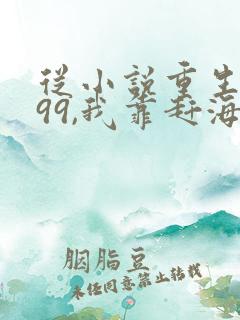 從小說重生
99,我靠赶海
胭脂豆
未经同意禁止转载